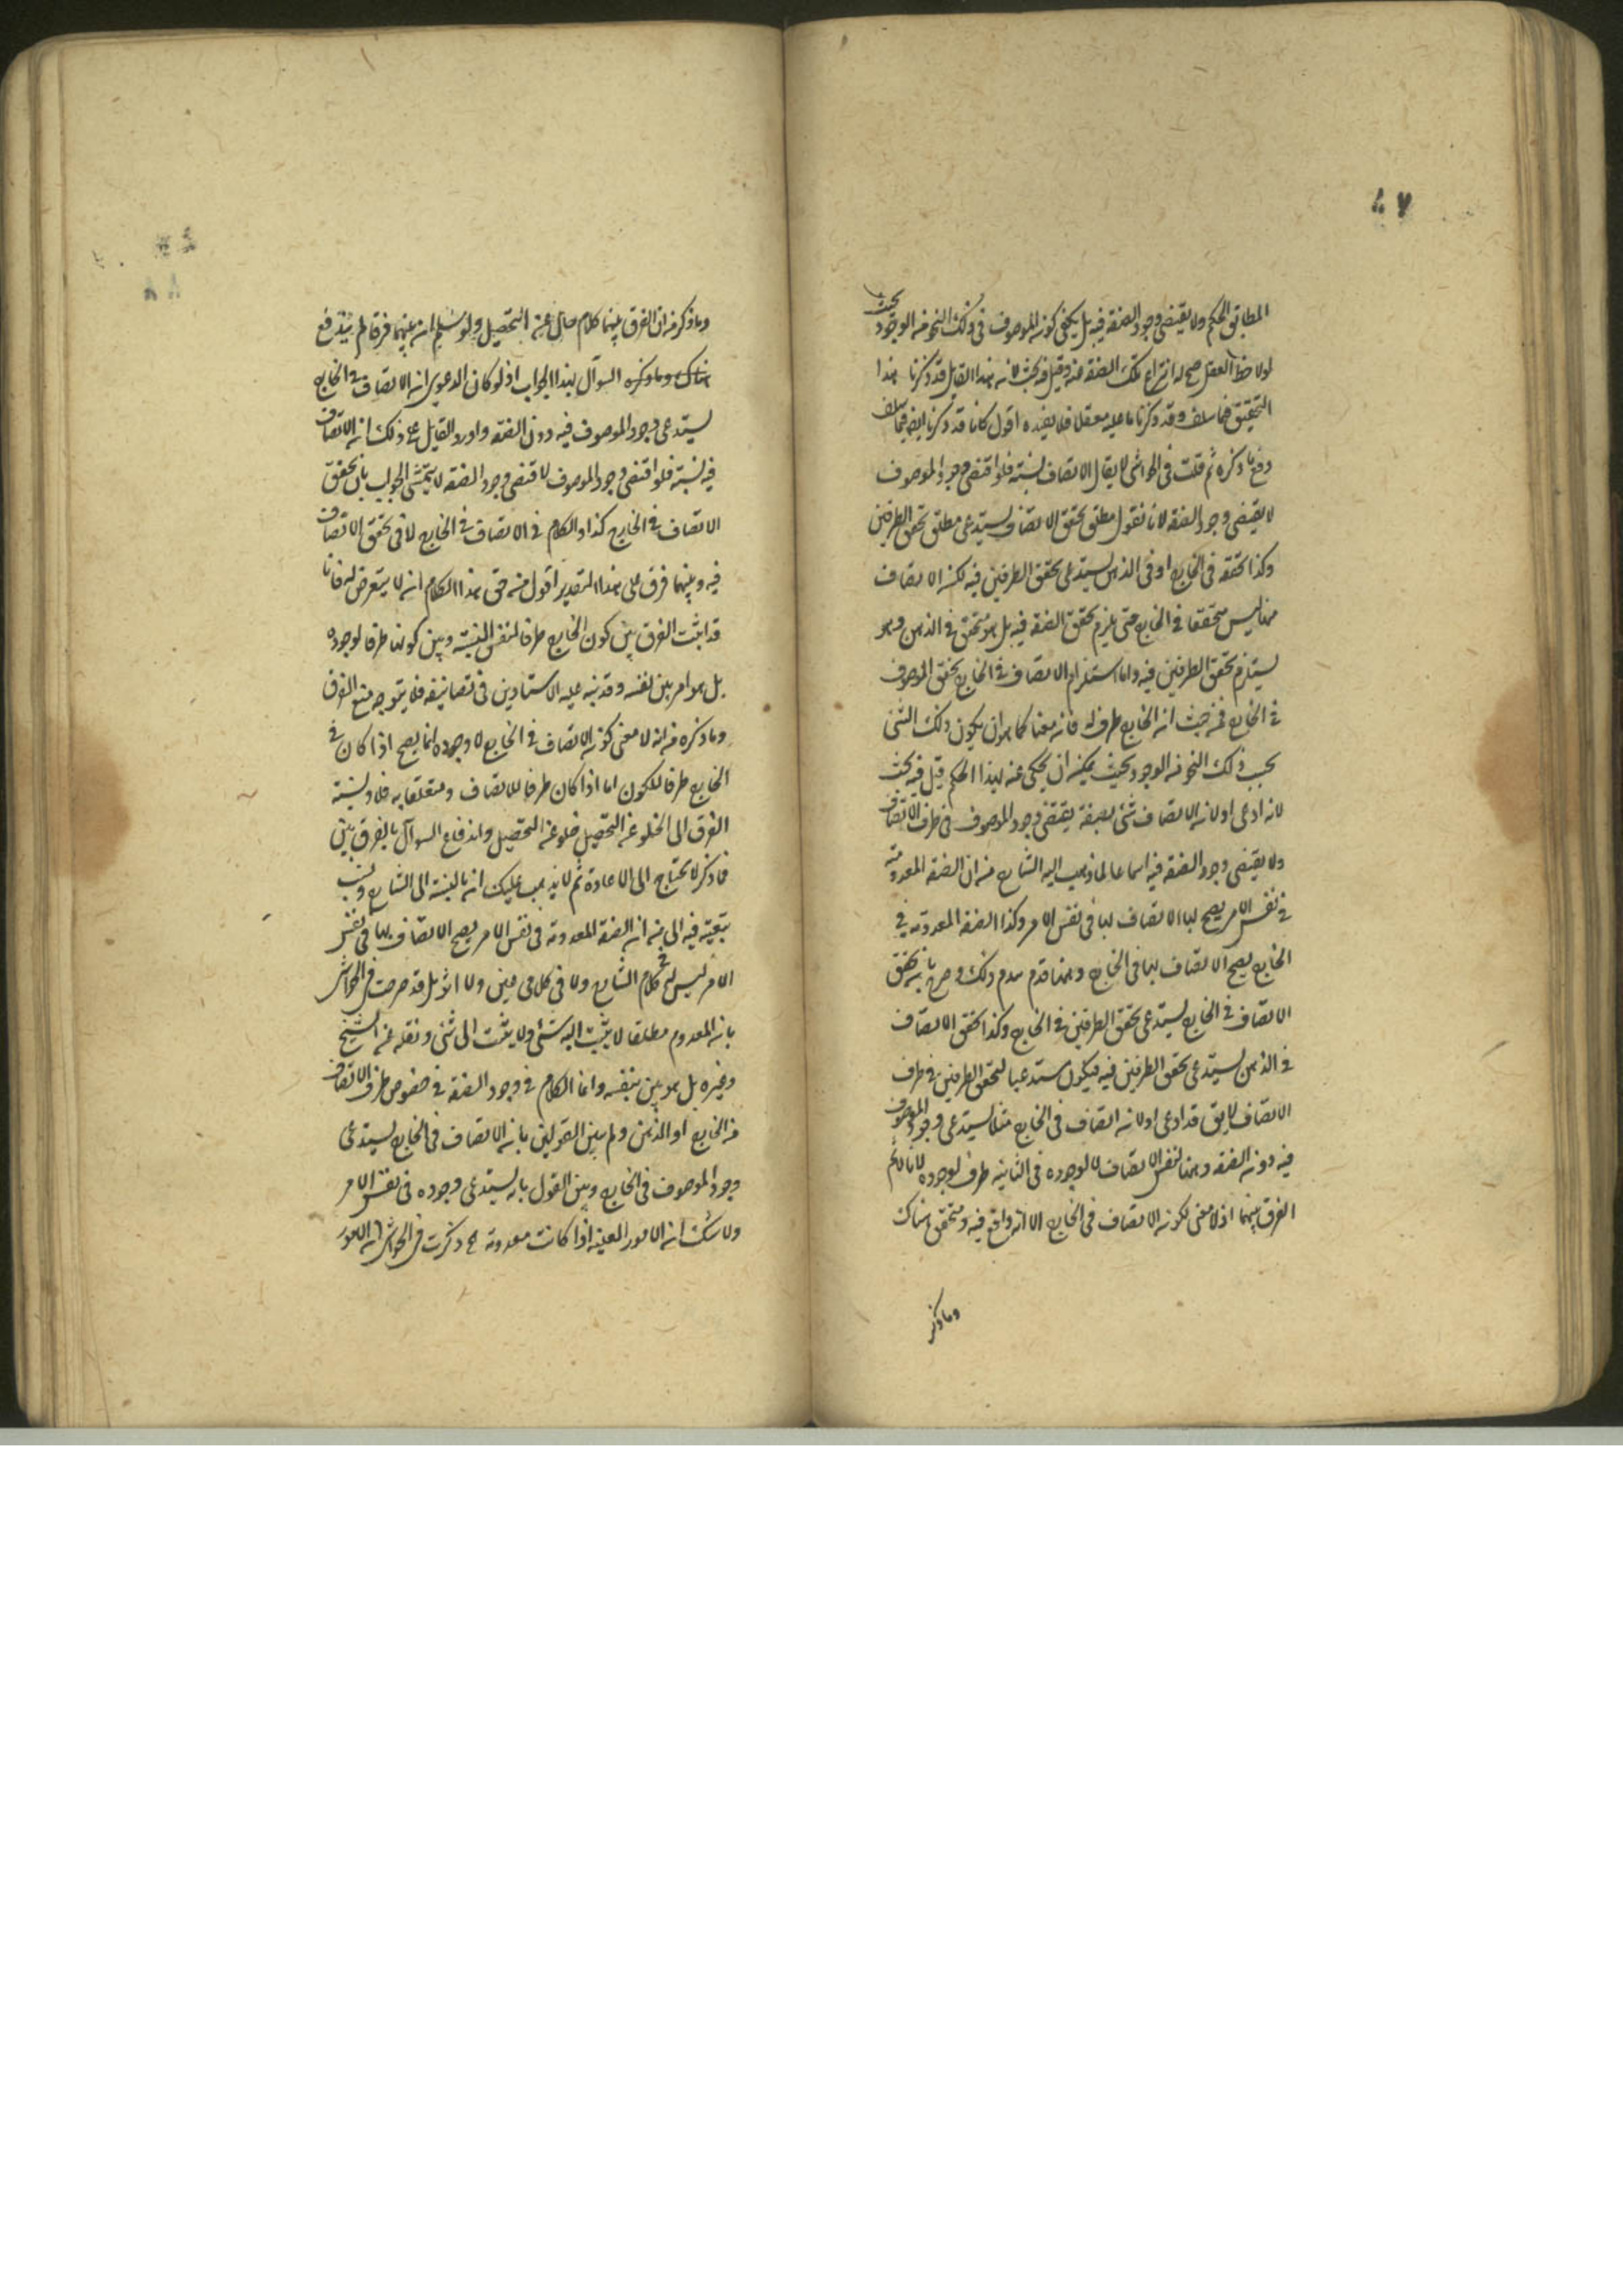 المطابق للحكم ولا يقتضى وجود الصفة فيه بل يكفى كون الموصوف فى ذلك النحو من الوجود بحيث
لو لاحظ العقل صح له انتزاع تلك الصفة عنه وقيل فيه بحث لانه هذا القايل قد ذكرنا هذا
التحقيق فيما سلف وقد ذكرنا ما عليه مفصلا فلا نعيده اقول كانا قد ذكرنا ايضا فيما سلف
دفع ما ذكره ثم قلت فى الحواشى لا يقال الاتصاف نسبة فلو اقتضى وجود الموصوف
لا يقتضى وجود الصفة لانا نقول مطلق تحقق الاتصاف يستدعى مطلق تحقق الطرفين
وكذا تحققه فى الخارج او فى الذهن يستدعى تحقق الطرفين فيه لكن الاتصاف
هنا ليس متحققا فى الخارج حتى يلزم تحقق الصفة فيه بل هو متحقق فى الذهن وهو
يستلزم تحقق الطرفين فيه واما استلزام الاتصاف فى الخارج تحقق الموصوف
فى الخارج فمن حيث ان الخارج ظرف له فانه معناه كما هو ان يكون ذلك الشئ
بحسب ذلك النحو من الوجود بحيث يمكن ان يحكى عنه بهذا الحكم قيل فيه بحث
لانه ادعى اولا ان الاتصاف شئ بصفة يقتضى وجود الموصوف فى ظرف الاتصاف
ولا يقتضى وجود الصفة فيه اسماعا لما ذهب اليه الشارح من ان الصفة المعدومة
فى نفس الامر يصح لها الاتصاف بها فى نفس الامر وكذا الصفة المعدومة فى
الخارج يصح الاتصاف بها فى الخارج وههنا قدم هدم ذلك وصرح بانه تحقق
الاتصاف فى الخارج يستدعى تحقق الطرفين فى الخارج وكذا تحقق الاتصاف
فى الذهن يستدعى تحقق الطرفين فيه فيكون مستدعيا لتحقق الطرفين فى ظرف
الاتصاف لا يق قد ادعى اولا ان اتصاف فى الخارج مثلا يستدعى وجود الموصوف
فيه دون الصفة وههنا لنفس الاتصاف لا لوجوده فى الثانية ظرف لوجوده لانا لا نم
الفرق بينهما اذ لا معنى لكون الاتصاف فى الخارج الا انه واقع فيه ومتحقق هناك
وما ذكر
وما ذكر من ان الفرق بينهما كلام خال عن التحصيل ولو سلم ان بينهما فرقا لم يندفع
هناك وما ذكره السوآل بهذا الجواب اذ لو كان الدعوى ان الاتصاف فى الخارج
يستدعى وجود الموصوف فيه دون الصفة واورد القايل على ذلك ان الاتصاف
فيه نسبة فلو اقتضى وجود الموصوف لاقتضى وجود الصفة لا يتمشى الجواب بان تحقق
الاتصاف فى الخارج كذا والكلام فى الاتصاف فى الخارج لا فى تحقق الاتصاف
فيه وبينهما فرق على هذا التقدير اقول من حق هذا الكلام ان لا يتعرض له فانا
قد اثبت الفرق بين كون الخارج ظرفا لنفس النسبة وبين كونها ظرفا لوجوده
بل هو امر بين بنفسه وقد نبه عليه الاستادين فى تصانيفه فلا يتوجه منع الفرق
وما ذكره من انه لا معنى كون الاتصاف فى الخارج لا وجوده انما يصح اذا كان فى
الخارج ظرفا للكون اما اذا كان ظرفا للاتصاف ومتعلقا به فلا ونسبة
الفرق الى الخلو عن التحصيل خلو عن التحصيل واندفاع السوآل بالفرق بين
فما ذكر لا يحتاج الى الاعادة ثم لا يذهب عليك ان بالنسبة الى الشارح ونسب
تبعيته فيه الى من ان الصفة المعدومة فى نفس الامر يصح الاتصاف بها فى نفس
الامر ليس فى كلام الشارح ولا فى كلامى عين ولا اثر بل قد صرحت فى الحواشى
بان المعدوم مطلقا لا يثبت اليه شئ ولا يثبت الى شئ ونقله عن الشيخ
وغيره بل هو بين بنفسه وانما الكلام فى وجود الصفة فى خصوص ظرف الاتصاف
من الخارج او الذهن ولم يبين القولين بان الاتصاف فى الخارج يستدعى
وجود الموصوف فى الخارج وبين القول بانه يستدعى وجوده فى نفس الامر
ولا شك ان الامور العينية اذا كانت معدومة ثم ذكرت فى الحواشى ان الامور